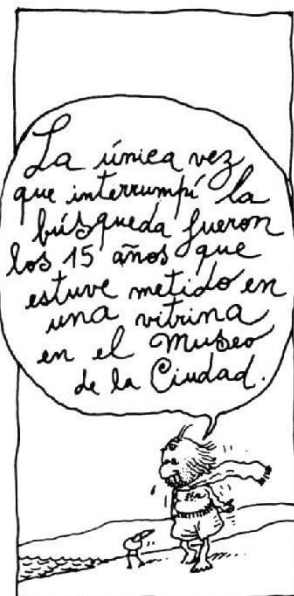 La única vez
que interrumpí la
búsqueda fueron
los 15 años que
estuve metido en
una vitrina
en el Museo
de la Ciudad.